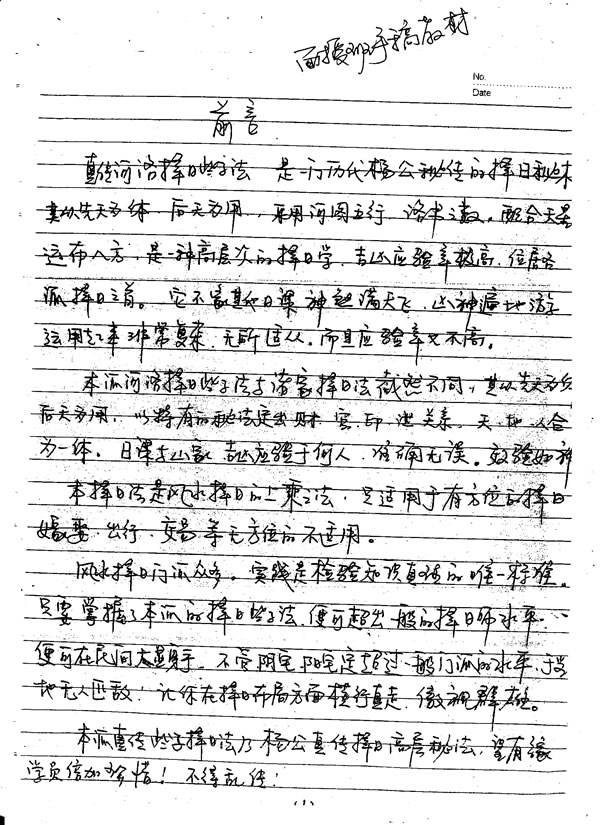 面授班手稿教材
No.
Date
前言
真传河洛择日些子法 是一门历代杨公秘传的择日秘术
其以先天为体，后天为用，采用河图五行，洛书之数。配合天星
运布八方，是一种高层次的择日学，吉凶应验率极高，位居各
派择日之首。它不象其他日课神煞满天飞，凶神遍地游
运用起来非常复杂，无所适从。而且应验率又不高。
本派河洛择日些子法与诸家择日法截然不同，其以先天为体
后天为用，以特有的秘法定出财、官、印、进关系，天、地、人合
为一体。日课与山家，吉凶应验于何人，准确无误。效验如神
本择日法是风水择日的上乘之法，只适用于有方位的择日
嫁娶、出行、交易等无方位的不适用。
风水择日门派众多。实践是检验知识真伪的唯一标准。
只要掌握了本派的择日些子法，便可超出一般的择日师水平。
便可在民间大显身手，不管阴宅、阳宅定超过一般门派的水平，于当
地无人匹敌！让你在择日布局方面横行直走，傲视群雄。
本派真传些子择日法乃杨公真传择日高层秘法，望有缘
学员倍加珍惜！不得乱传！
(1)